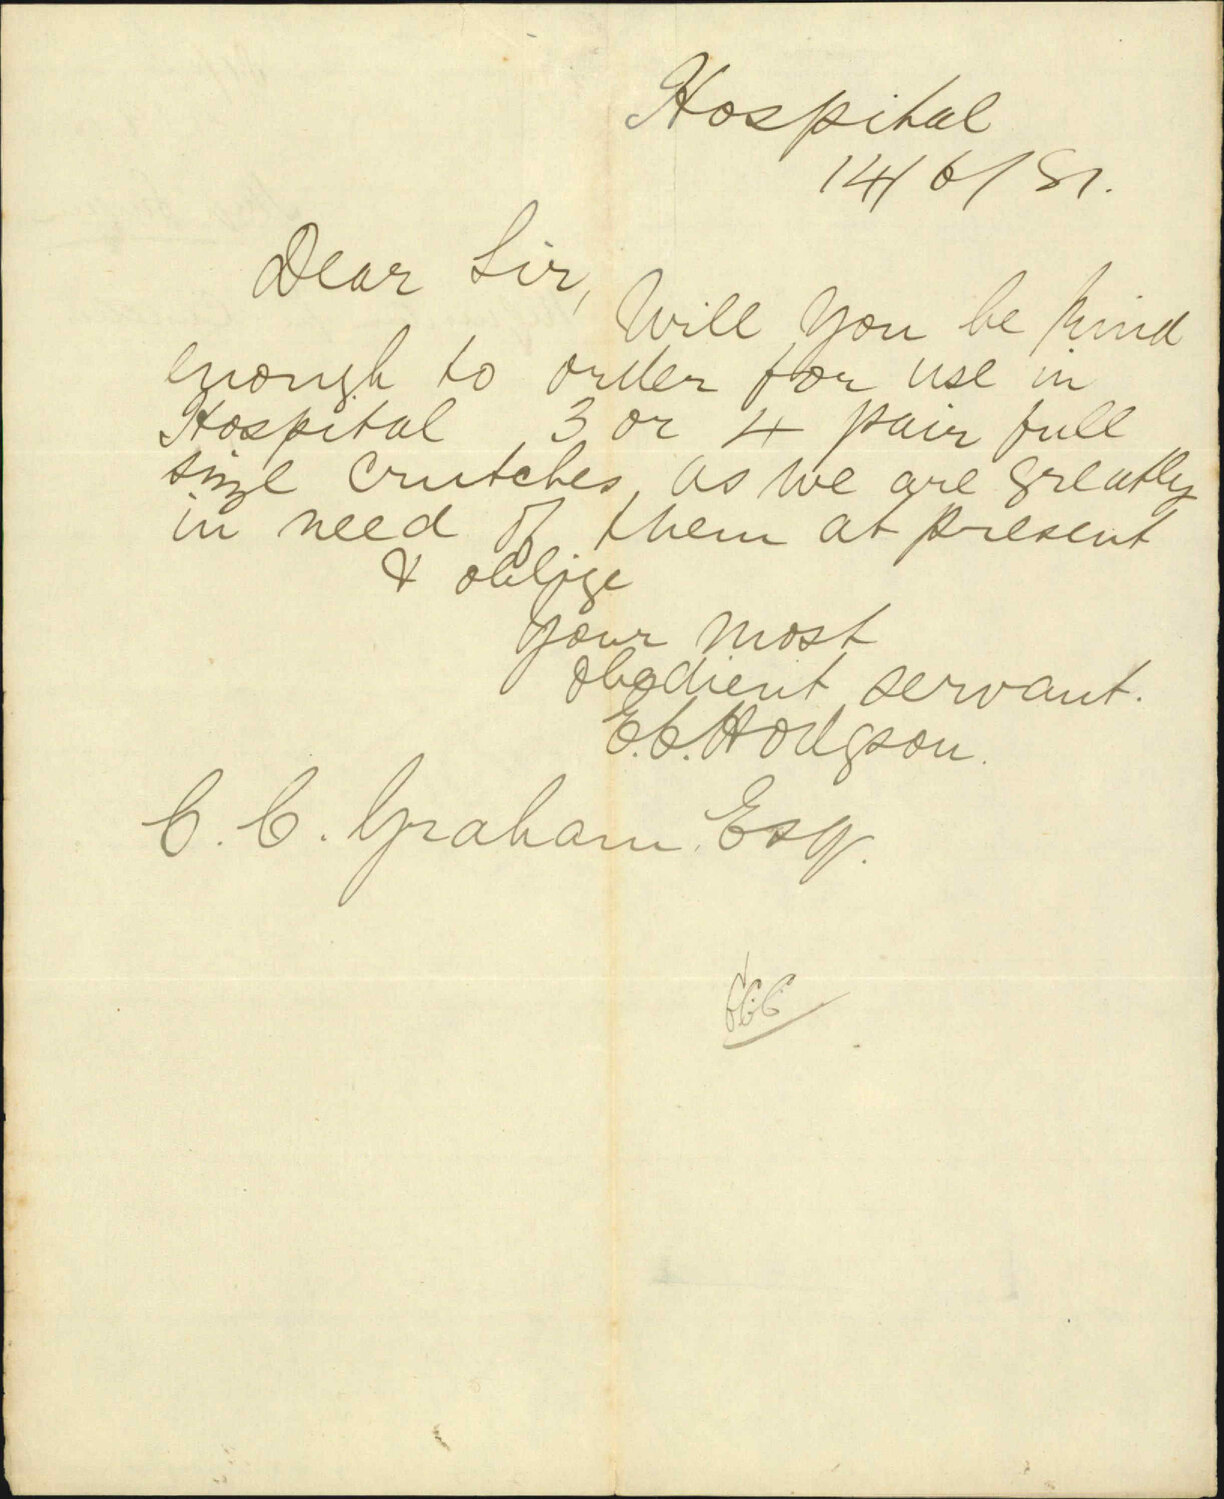 Hospital
14/6/81.
Dear Sir,
Will you be kind
enough to order for use in
Hospital 3 or 4 pair full
size crutches, as we are greatly
in need of them at present
& oblige
your most
obedient servant.
E.C. Hodgson.
C. C. Graham, Esq.